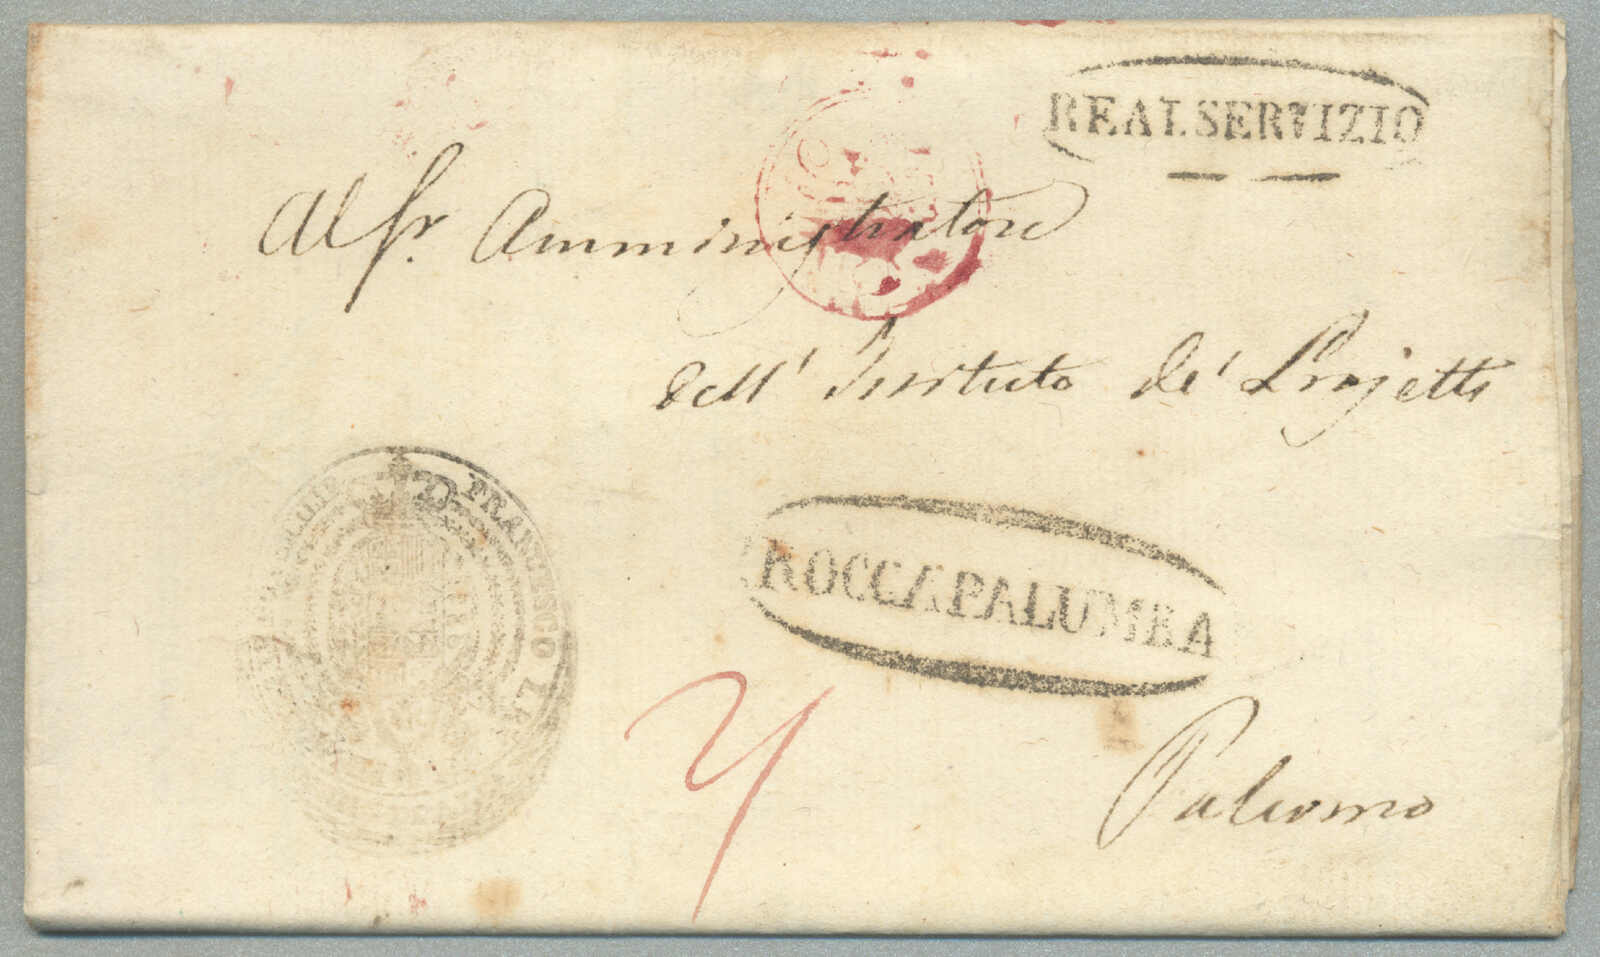 REAL SERVIZIO
Al Sr. Amministratore
dell' Instituto de' Projetti
FRANCESCO I.
ROCCAPALUMBA
Palermo